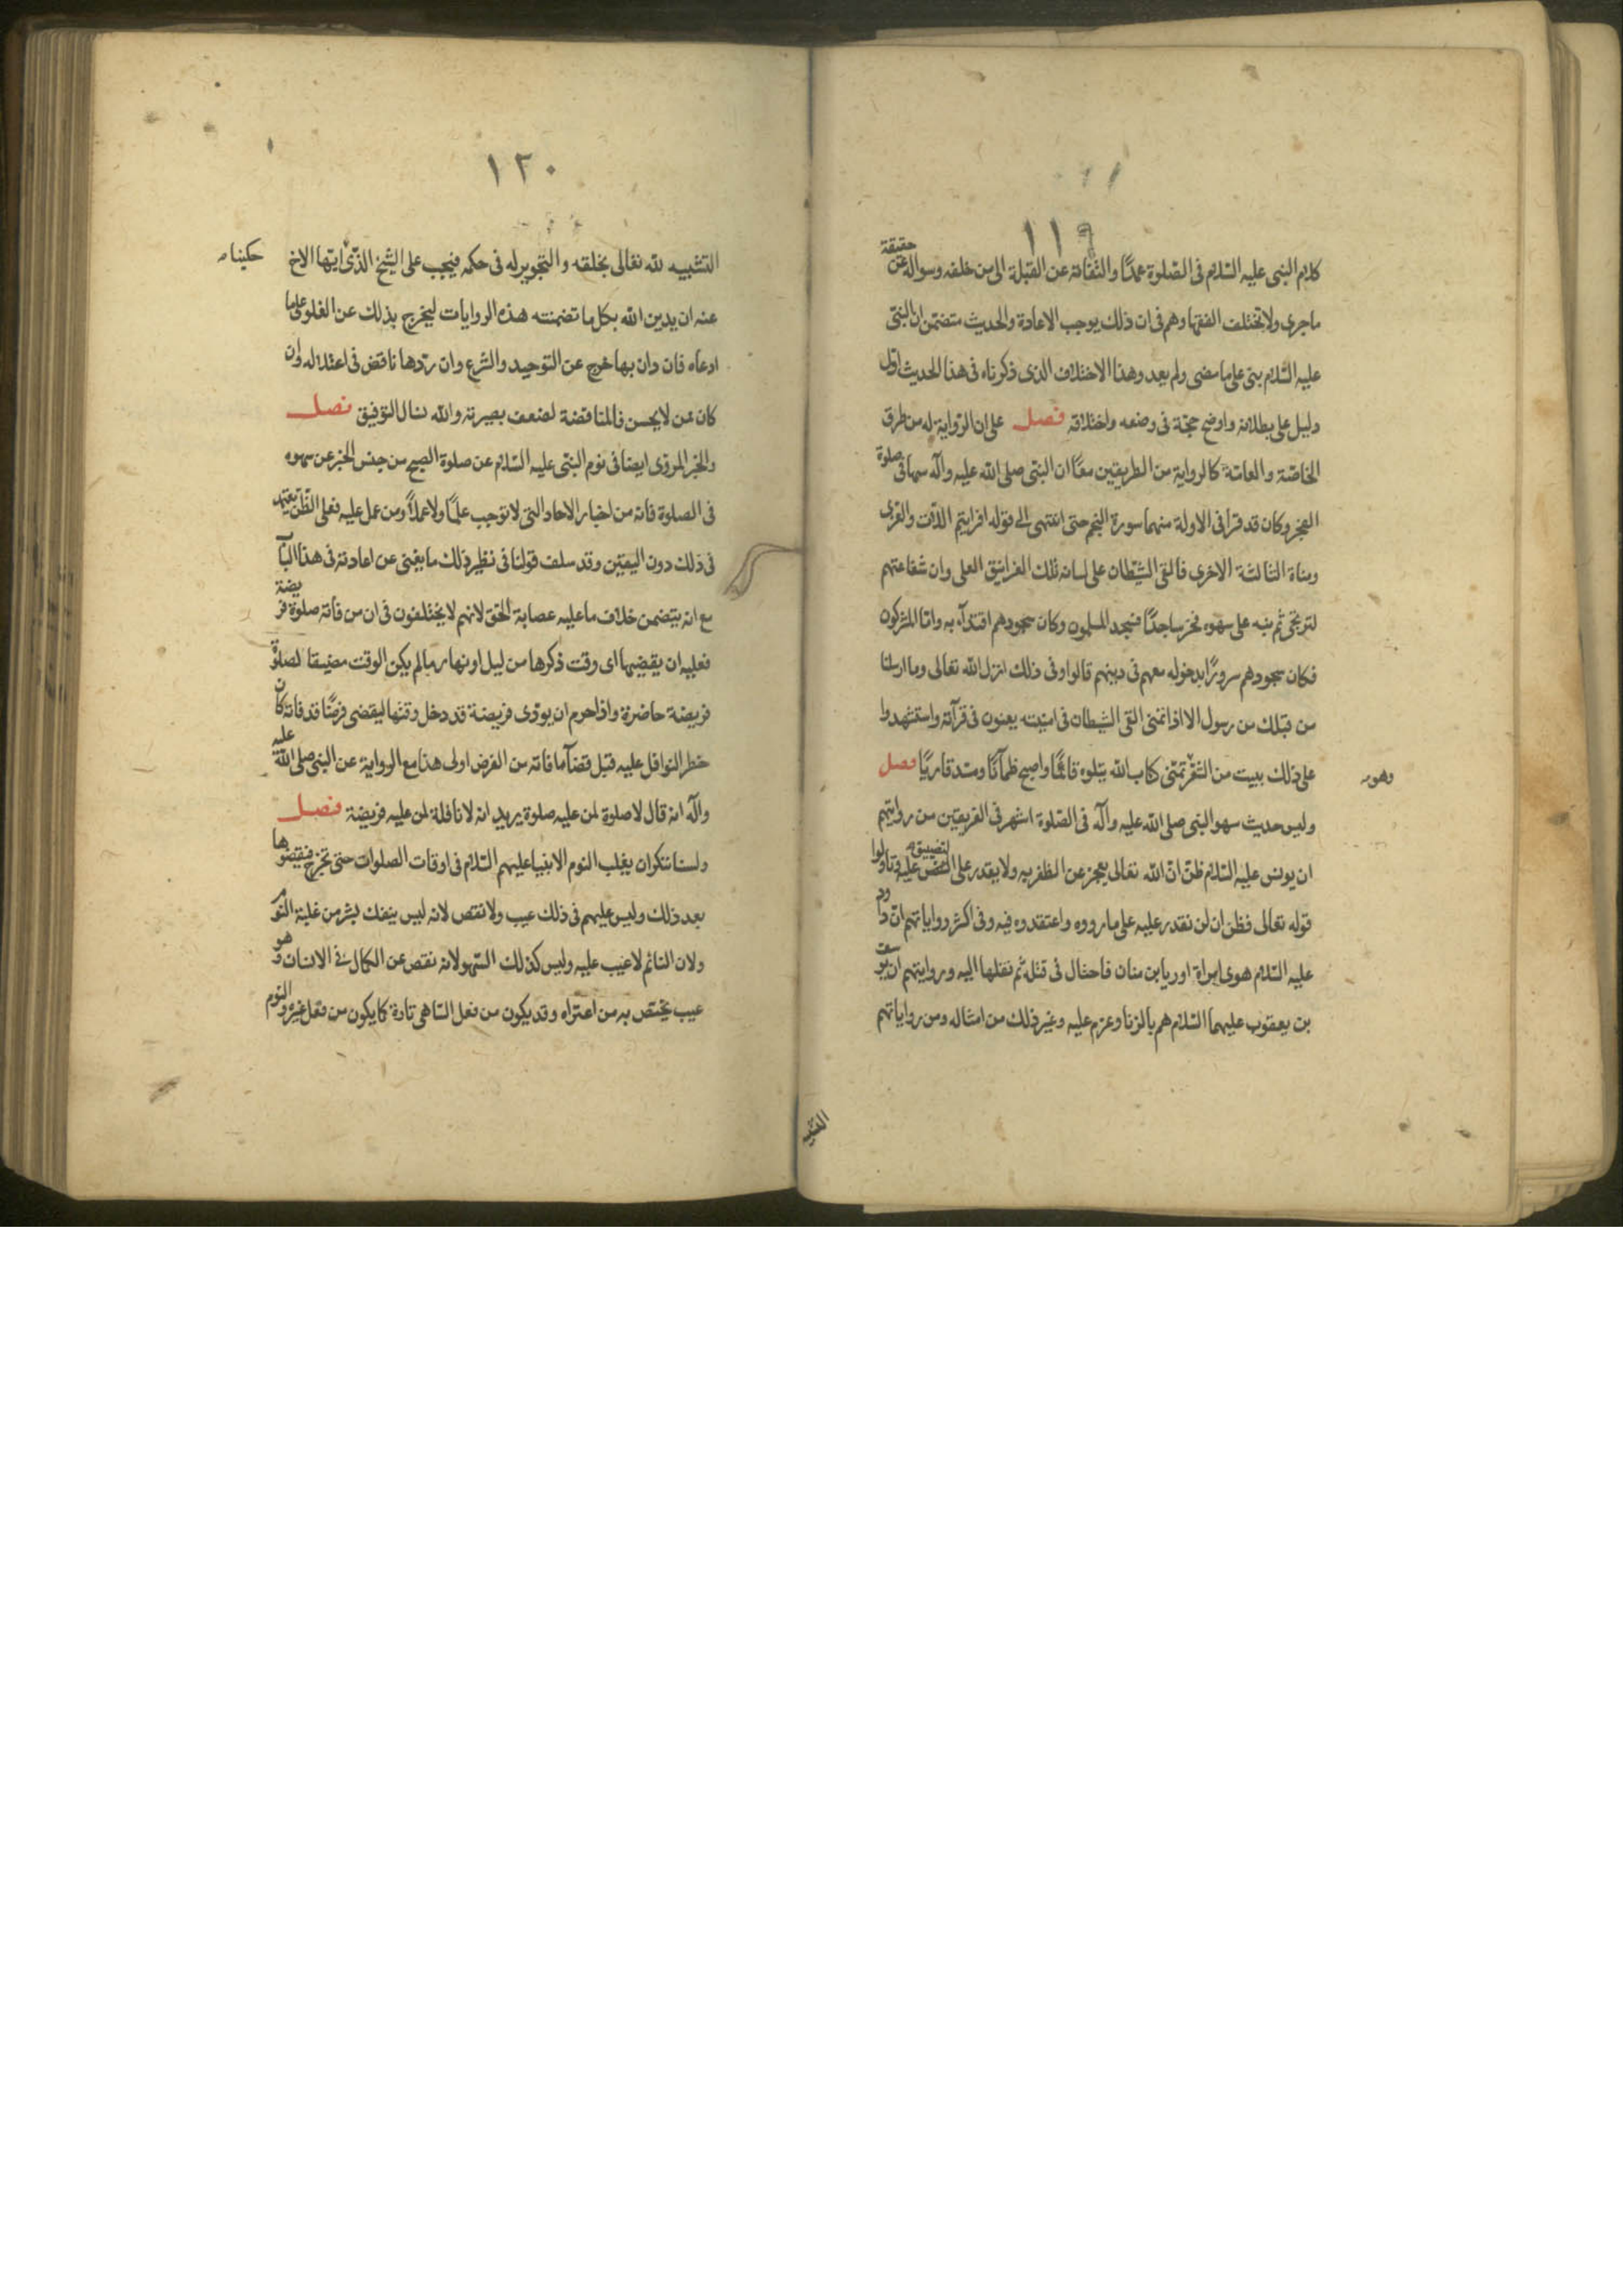 ١١٩
كلام النبى عليه السّلام فى الصّلوة عمدًا والتفاته عن القبلة الى من خلفه وسواله عن حقيقة
ماجرى ولا تختلف الفقهاء وهم فى ان ذلك يوجب الاعادة والحديث متضمّن ان النبىّ
عليه السّلام بنى على ما مضى ولم يعد وهذا الاختلاف الذى ذكرناه فى هذا الحديث اول
دليل على بطلانه واوضح حجّة فى وضعه واختلاقه فصل على ان الرّواية له من طرق
الخاصّة والعامّة كالرواية من الطريقين معًا ان النبّى صلى الله عليه وآله سها فى صلوة
الفجر وكان قد قرا فى الاولة منهما سورة النجم حتى انتهى الى قوله افرايتم اللّات والعزى
ومناة الثالثة الاخرى فالقى الشيّطان على لسانه تلك الغرانيق العلى وان شفاعتهم
لترتجى ثم نبه على سهوه فخر ساجدًا فسجد المسلمون وكان سجودهم اقتدآء به وامّا المشركون
فكان سجودهم سرورًا بدخوله معهم فى دينهم قالوا وفى ذلك انزل الله تعالى وما ارسلنا
من قبلك من رسول الا اذا تمنى القى الشيطان فى امنيته يعنون فى قرآنه واستشهدوا
على ذلك ببيت من الشّعر تمنّى كتاب الله يتلوه قائمًا واصبح ظمآنًا ومسد قاريًا فصل
وهو
وليس حديث سهو النبى صلى الله عليه وآله فى الصّلوة اشهر فى الفريقين من روايتهم
ان يونس عليه السّلام ظنّ انّ الله تعالى يعجز عن الظفر به ولا يقدر على التضييق عليه وتاولوا
قوله تعالى فظن ان لن نقدر عليه على ما رووه واعتقدوه فيه وفى اكثر رواياتهم انّ داود
عليه السّلام هوى امراة اوريا بن حنان فاحتال فى قتله ثم نقلها اليه وروايتهم ان يوسف
بن يعقوب عليهما السّلام هم بالزنا وعزم عليه وغير ذلك من امثاله ومن رواياتهم
التشبيه
١٢٠
التشبيه لله تعالى بخلقه والتجوير له فى حكمه فيجب على الشّيخ الذّى ايّها الاخ
حكينا
عنه ان يدين الله بكل ما تضمنته هذه الروايات ليخرج بذلك عن الغلو على ما
ادعاه فان دان بها خرج عن التوحيد والشرع وان ردّها ناقض فى اعتلاله وان
كان ممن لا يحسن فالمناقضة لضعف بصيرته والله نسال التوفيق فصل
والخبر المروّى ايضا فى نوم النبىّ عليه السّلام عن صلوة الصبح من جنس الخبر عن سهوه
فى الصلوة فانه من اخبار الاحاد التى لا توجب علمًا ولا عملًا ومن عمل عليه فعلى الظّن يعتمد
فى ذلك دون اليقين وقد سلف قولنا فى نظير ذلك ما يغنى عن اعادته فى هذا الباب
مع انه يتضمن خلاف ما عليه عصابة الحّق لانهم لا يختلفون فى ان من فاته صلوة فريضة
فعليه ان يقضيها اى وقت ذكرها من ليل او نهار ما لم يكن الوقت مضيقا لصلوة
فريضة حاضرة واذا حرم ان يودّى فريضة قد دخل وقتها ليقضى فرضًا قد فاته كان
حظر النوافل عليه قبل قضآء ما فاته من الفرض اولى هذا مع الرواية عن النبىّ صلى الله عليه
وآله انه قال لا صلوة لمن عليه صلوة يريد انه لا نافلة لمن عليه فريضة فصل
ولسنا ننكر ان يغلب النوم الانبيا عليهم السّلام فى اوقات الصلوات حتى تخرج فيقضوها
بعد ذلك وليس عليهم فى ذلك عيب ولا نقص لانه ليس ينفك بشر من غلبة النوم
ولان النائم لا عيب عليه وليس كذلك السّهو لانه نقص عن الكمال فى الانسان وهو
عيب يختص به من اعتراه وقد يكون من فعل السّاهى تارة كما يكون من فعل غيره والنوم